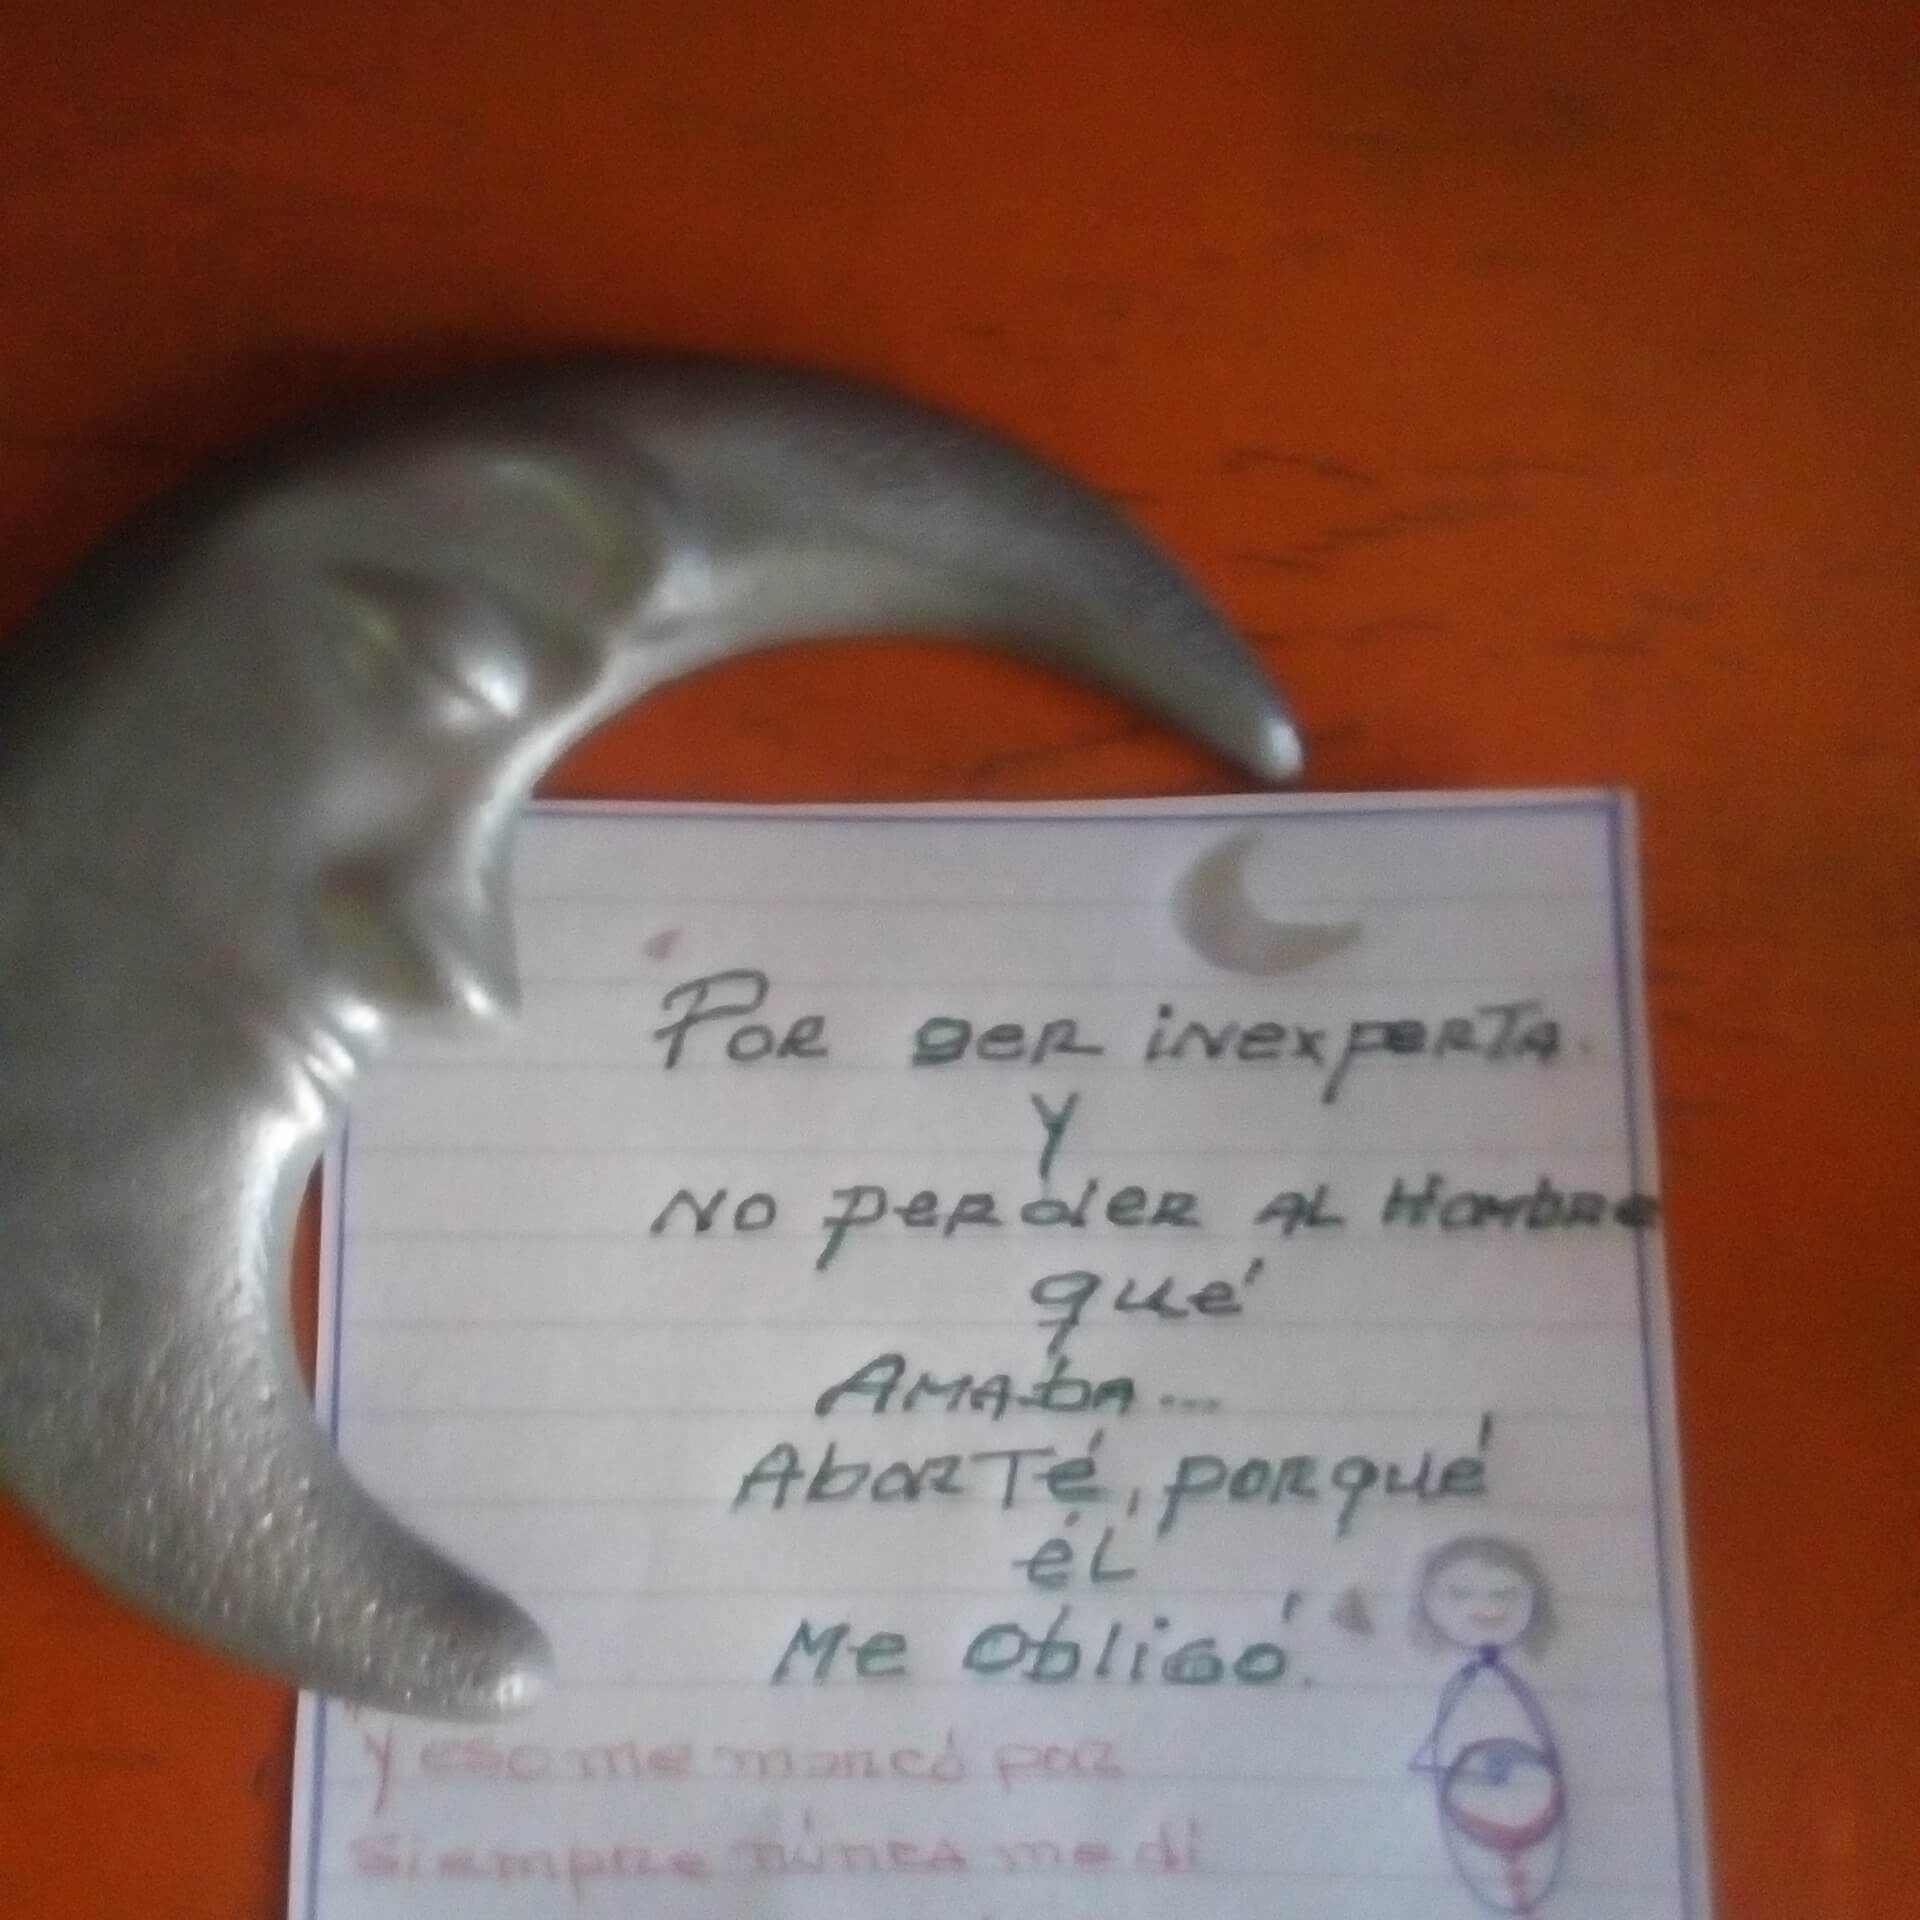 Por ser inexperta
y
no perder al Hombre
qué
Amaba...
Aborté, porqué
él
Me Obligó.
y eso me marcó por
siempre núnca me di